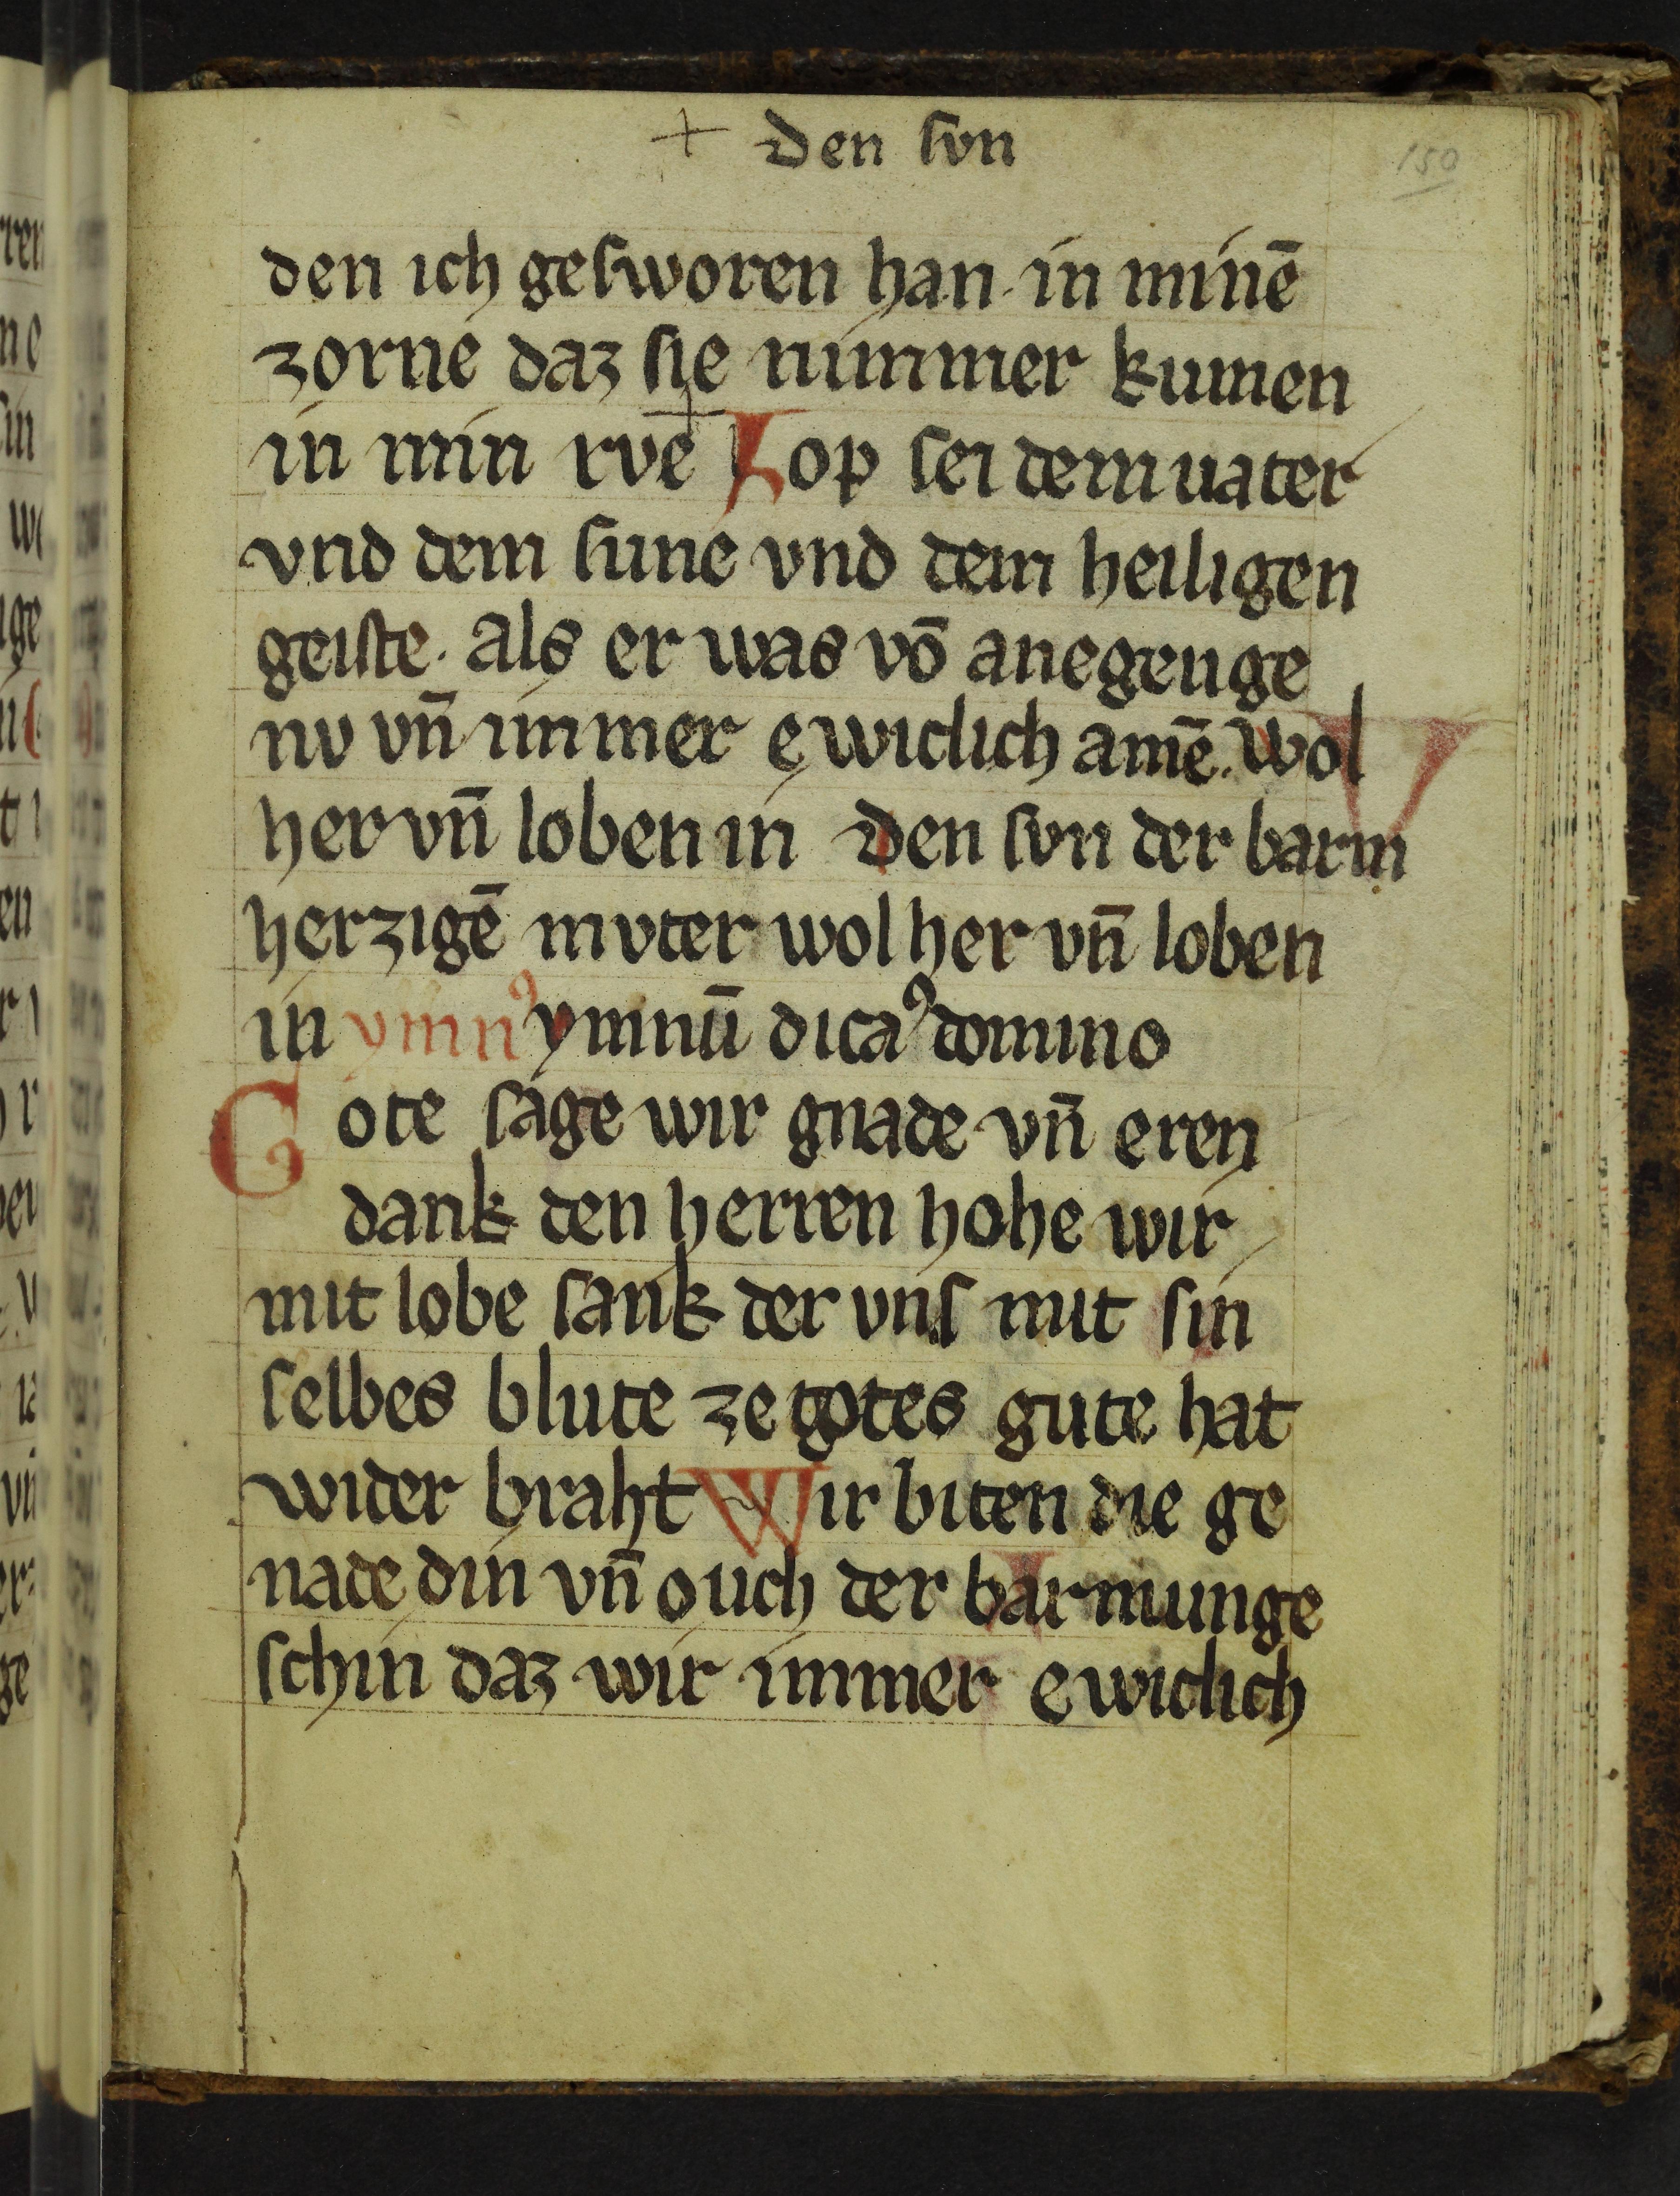 + Den svn
150
den ich gesworen han · in minē
zorne daz sie nimmer kumen
in min rve + Lop sei dem uater
vnd dem sune vnd dem heiligen
geiste · als er was vō anegenge
nv vn̄ immer ewiclich amē. Wol
her vn̄ loben in Den svn der barm
herzigē mvter wol her vn̄ loben
in ymnꝰ ymnū dicaꝰ domino
Gote sage wir gnade vn̄ eren
dank den herren hohe wir
mit lobe sank der vns mit sin
selbes blute ze gotes gute hat
wider braht Wir biten die ge
nade din vn̄ ouch der barmunge
schin daz wir immer ewiclich